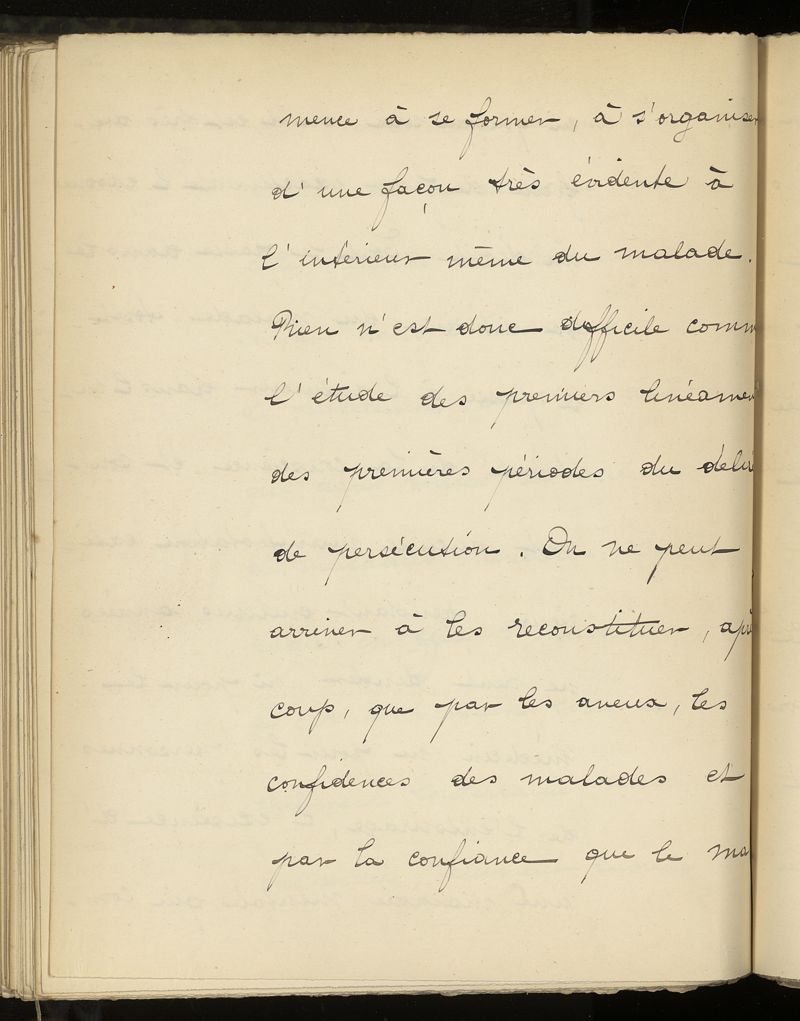 mence à se former, à s'organiser
d'une façon très évidente à
l'intérieur même du malade.
Rien n'est donc difficile comm
l'étude des premiers linéamen
des premières périodes du déli
de persécution. On ne peut
arriver à les reconstituer, apr
coup, que par les aveux, les
confidences des malades et
par la confiance que le ma